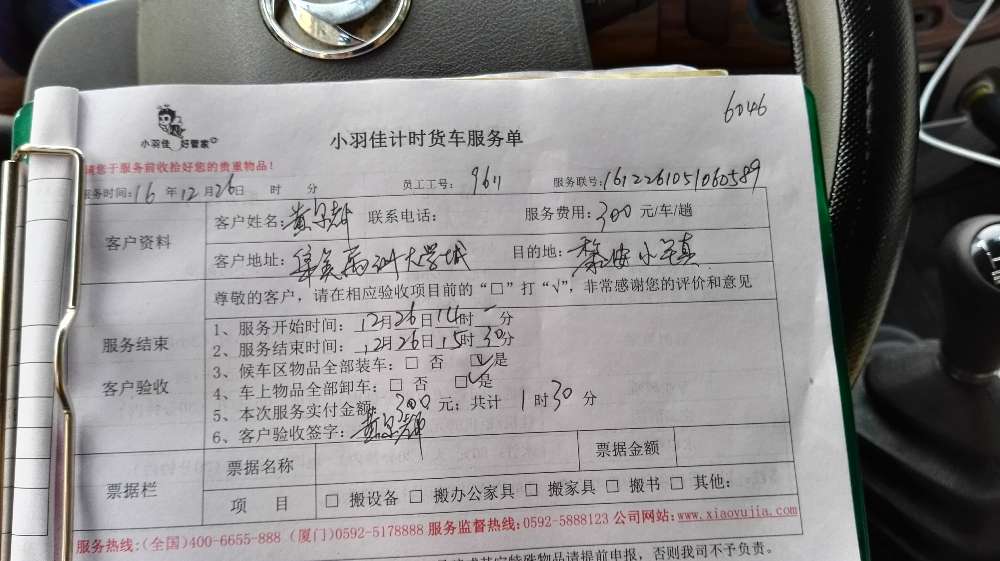 6046
小羽佳 好管家
小羽佳计时货车服务单
请您于服务前收拾好您的贵重物品!
服务时间:16年12月26日 时 分 员工工号: 9611 服务联号:1612261051060589
客户资料
客户姓名: 联系电话: 服务费用:300元/车/趟
客户地址: 大学城 目的地: 小
服务结束
客户验收
尊敬的客户,请在相应验收项目前的“□”打“√”,非常感谢您的评价和意见
1、服务开始时间:12月26日14时 一 分
2、服务结束时间:12月26日15时30分
3、候车区物品全部装车:□ 否 ☑是
4、车上物品全部卸车:□ 否 ☑是
5、本次服务实付金额:300元;共计 1时30分
6、客户验收签字:
票据栏
票据名称 票据金额
项 目 □ 搬设备 □ 搬办公家具 □ 搬家具 □ 搬书 □ 其他:
服务热线:(全国)400-6655-888 (厦门)0592-5178888 服务监督热线:0592-5888123 公司网站:www.xiaoyujia.com
特殊物品请提前申报,否则我司不予负责。